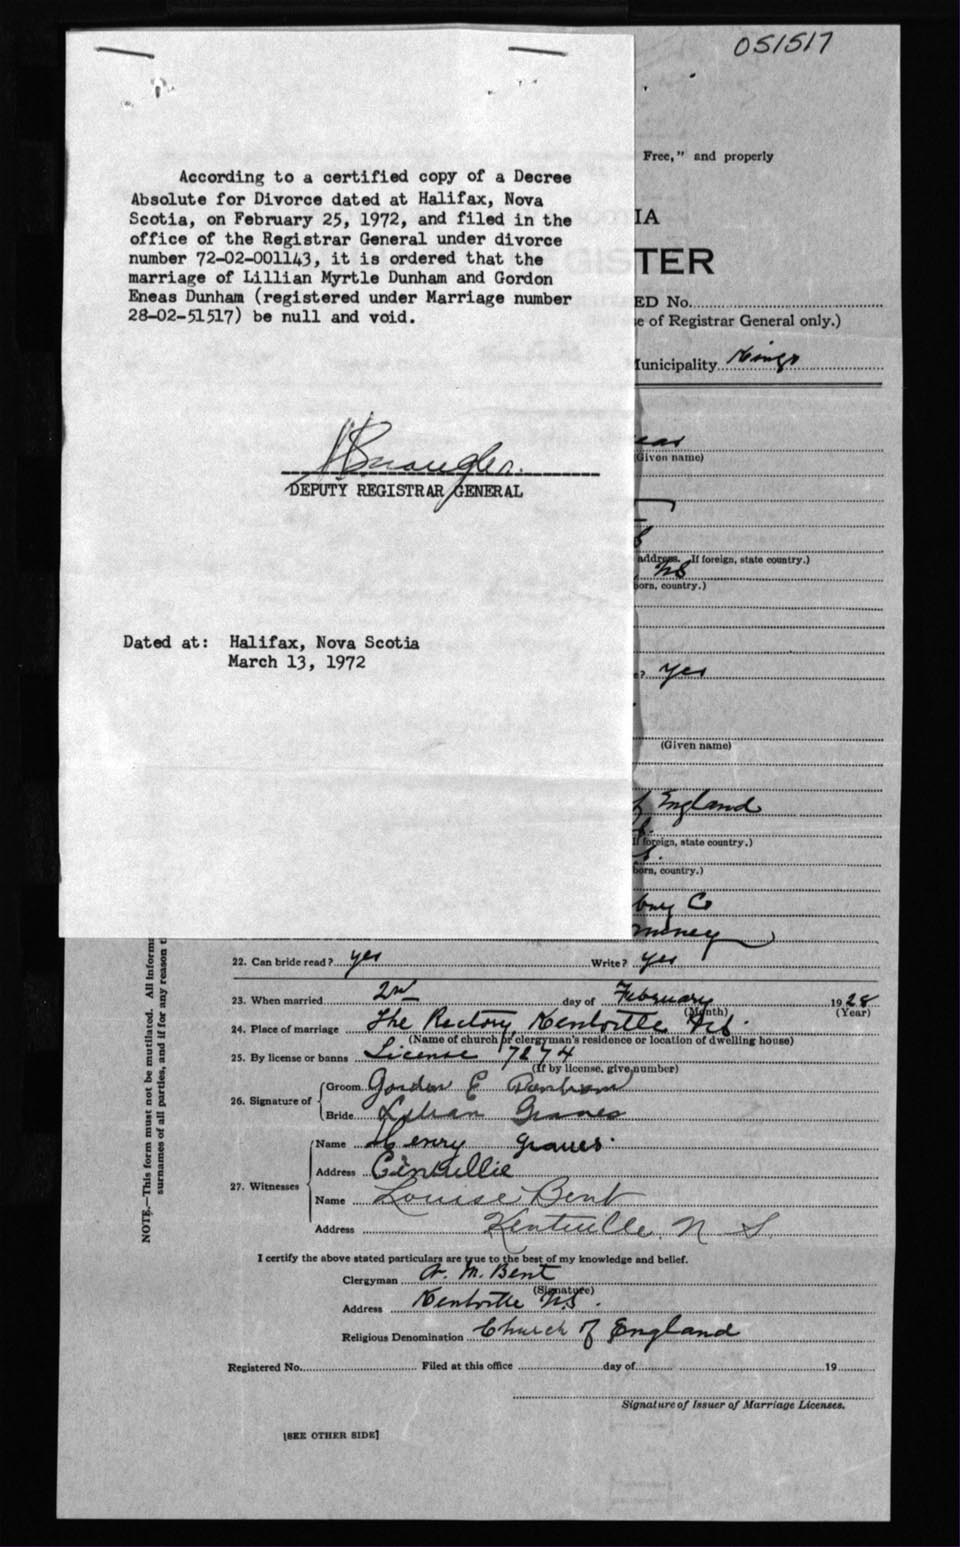 051517
Free," and properly
IA
TER
ED No.
e of Registrar General only.)
unicipality Kings
(Given name)
address. If foreign, state country.)
NS
orn, country.)
? yes
(Given name)
f England
If foreign, state country.)
orn, country.)
bury Co
According to a certified copy of a Decree
Absolute for Divorce dated at Halifax, Nova
Scotia, on February 25, 1972, and filed in the
office of the Registrar General under divorce
number 72-02-001143, it is ordered that the
marriage of Lillian Myrtle Dunham and Gordon
Eneas Dunham (registered under Marriage number
28-02-51517) be null and void.
DEPUTY REGISTRAR GENERAL
Dated at: Halifax, Nova Scotia
March 13, 1972
NOTE.—This form must not be mutilated. All informa
surnames of all parties, and if for any reason t
22. Can bride read? yes Write? yes
23. When married 2nd day of February 1928
(Month) (Year)
24. Place of marriage The Rectory, Kentville N.S.
(Name of church or clergyman's residence or location of dwelling house)
25. By license or banns License 7274
(If by license, give number)
26. Signature of Groom Gordon E Dunham
Bride Lillian Graves
27. Witnesses Name Henry Graves
Address
Name Louise Bent
Address Kentville, N S.
I certify the above stated particulars are true to the best of my knowledge and belief.
Clergyman A. M. Bent
(Signature)
Address Kentville N.S.
Religious Denomination Church of England
Registered No. Filed at this office day of 19
Signature of Issuer of Marriage Licenses.
[SEE OTHER SIDE]